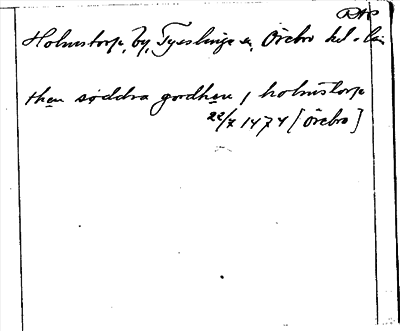 RAP
Holmstorp, by, Tysslinge sn, Örebro hd. län
then söddra gordhen j holmstorp
22/7 1474 [Örebro]